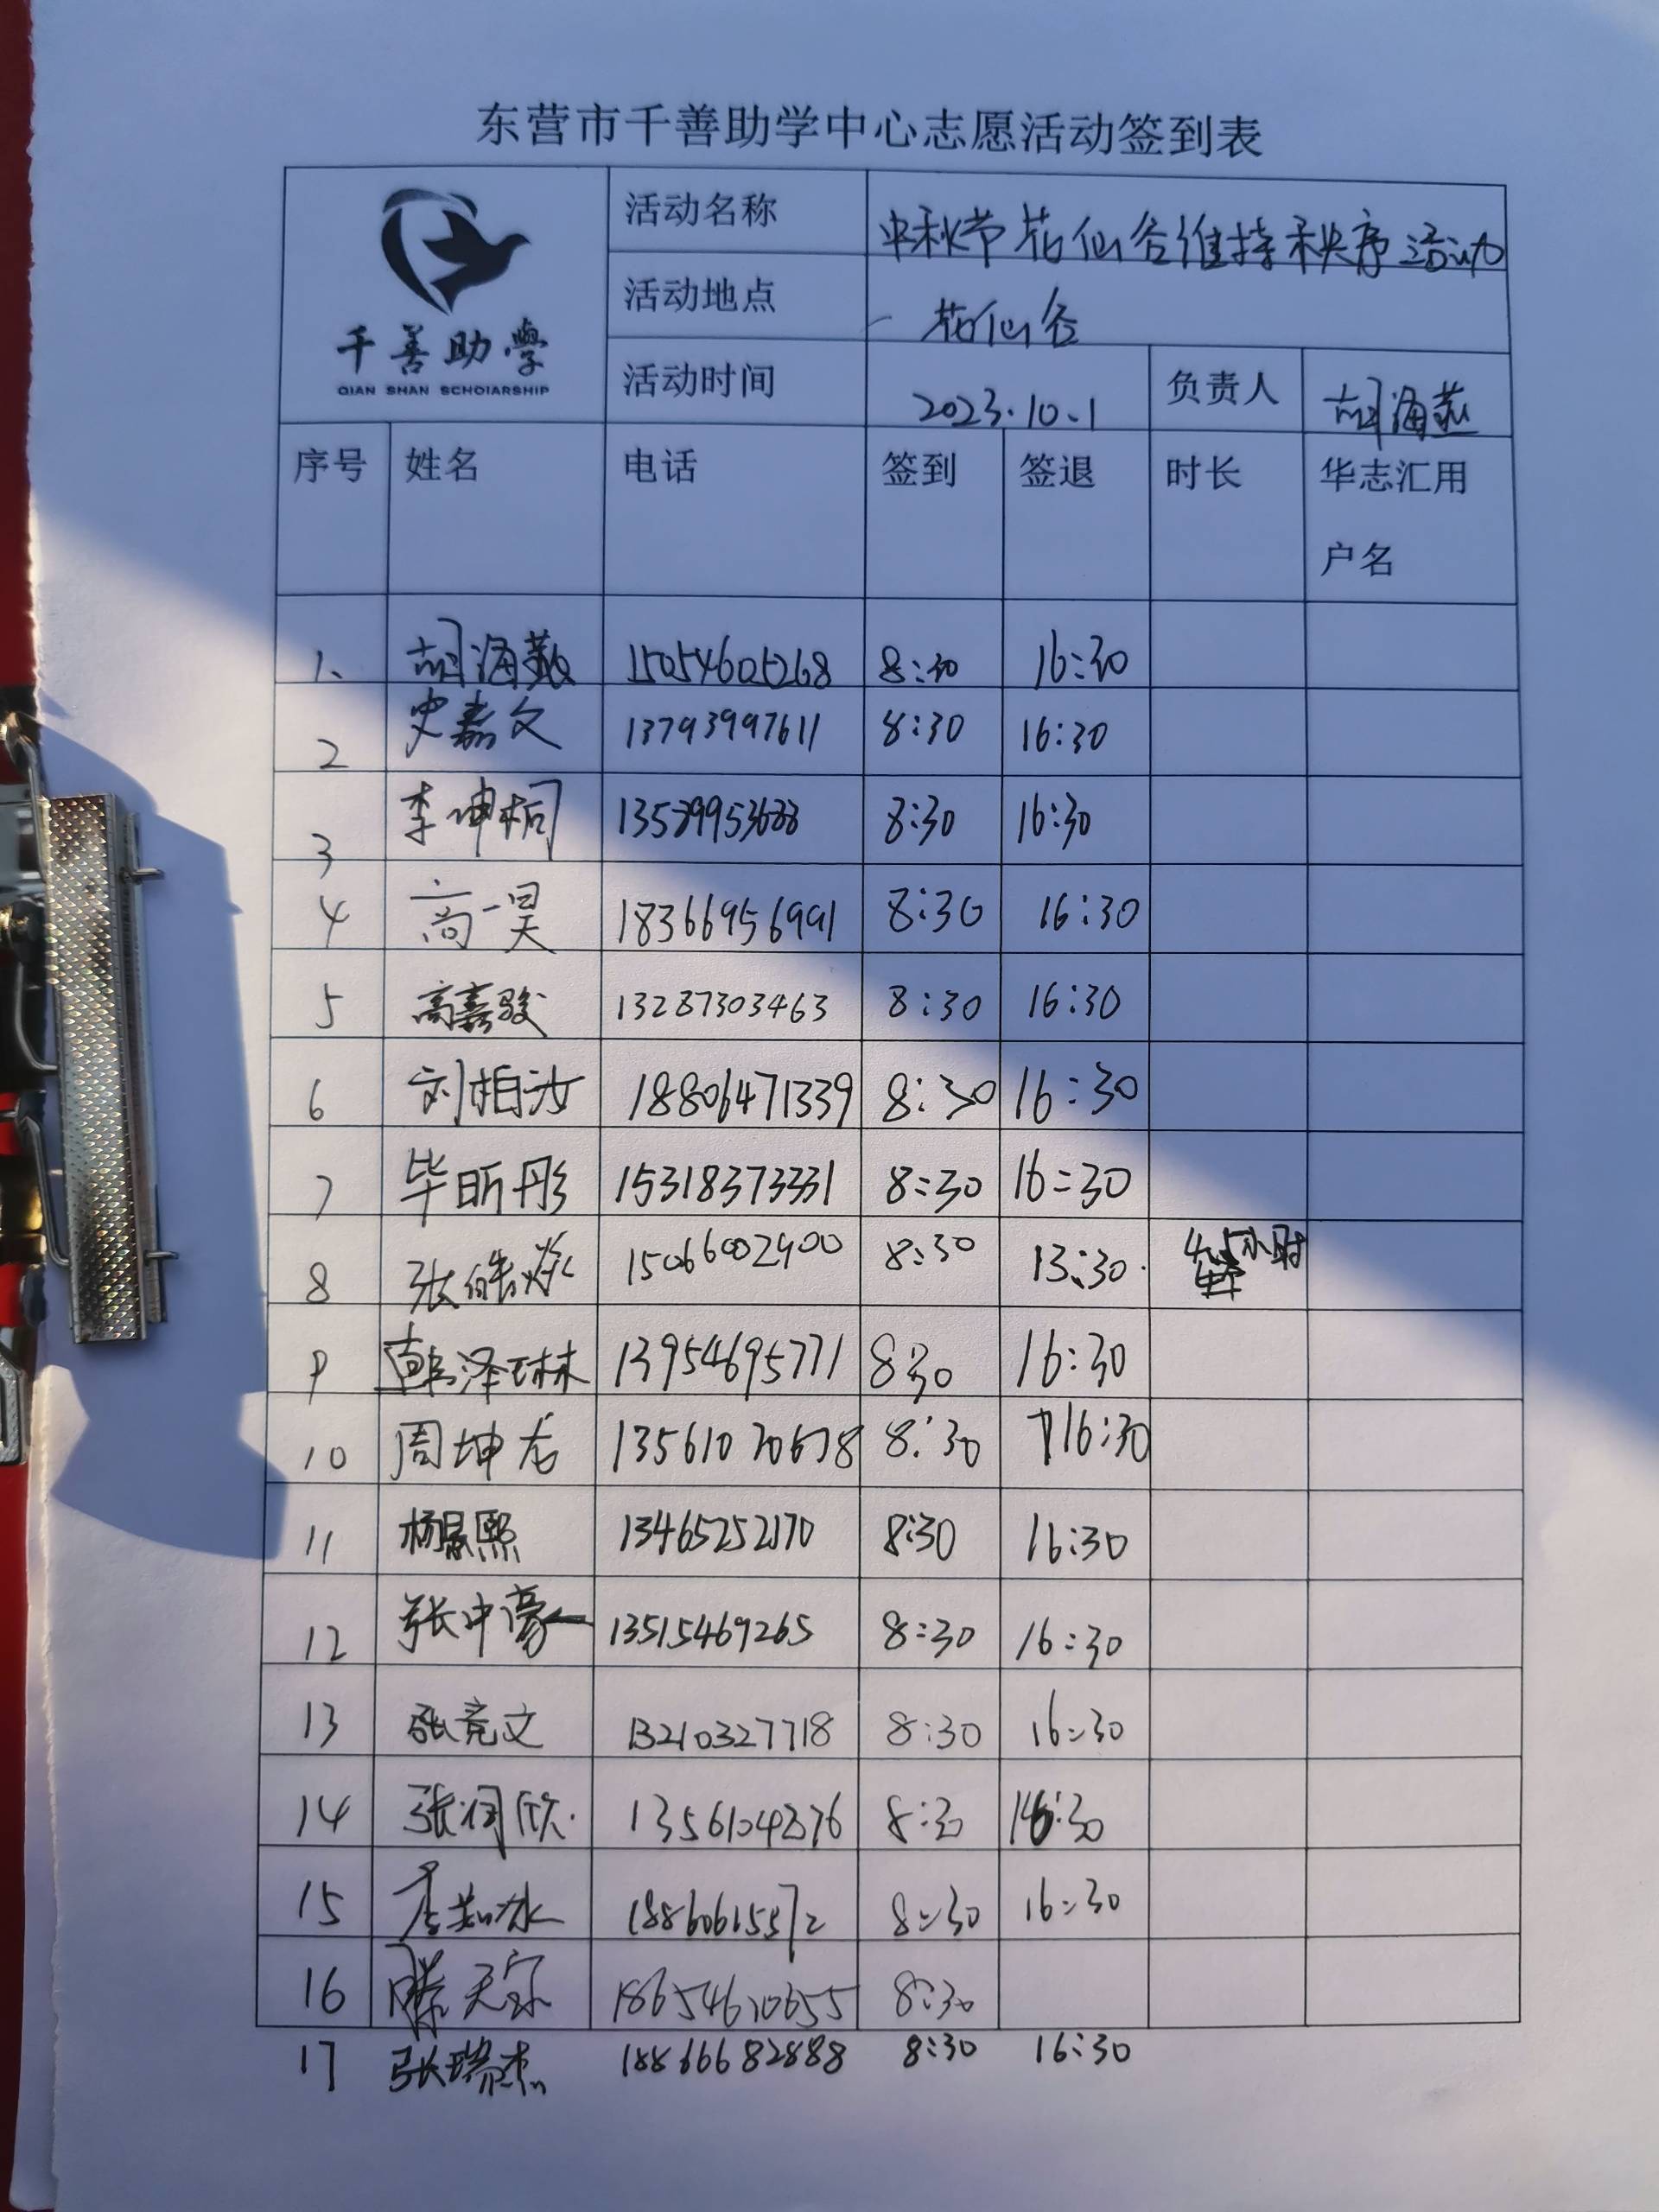 东营市千善助学中心志愿活动签到表
千善助學
QIAN SHAN SCHOIARSHIP
活动名称 中秋节花仙谷维持秩序活动
活动地点 花仙谷
活动时间 2023.10.1 负责人 胡海燕
序号 姓名 电话 签到 签退 时长 华志汇用户名
1、 胡海燕 15054605268 8:30 16:30
2 史嘉文 13793997611 8:30 16:30
3 李坤桐 8:30 16:30
4 高一昊 18366956991 8:30 16:30
5 高嘉骏 13287303463 8:30 16:30
6 刘柏汝 18806471339 8:30 16:30
7 毕昕彤 15318373331 8:30 16:30
8 张皓焱 15066002900 8:30 13:30. 4.5小时
9 韩泽琳 13954695771 8:30 16:30
10 周坤龙 13561070678 8:30 16:30
11 杨晨熙 13465252170 8:30 16:30
12 张中豪 13515469265 8:30 16:30
13 张竞文 13210327718 8:30 16:30
14 张润欣 8:30 16:30
15 18860615572 8:30 16:30
16 滕天 18654610655 8:30
17 张瑞杰 18866682888 8:30 16:30